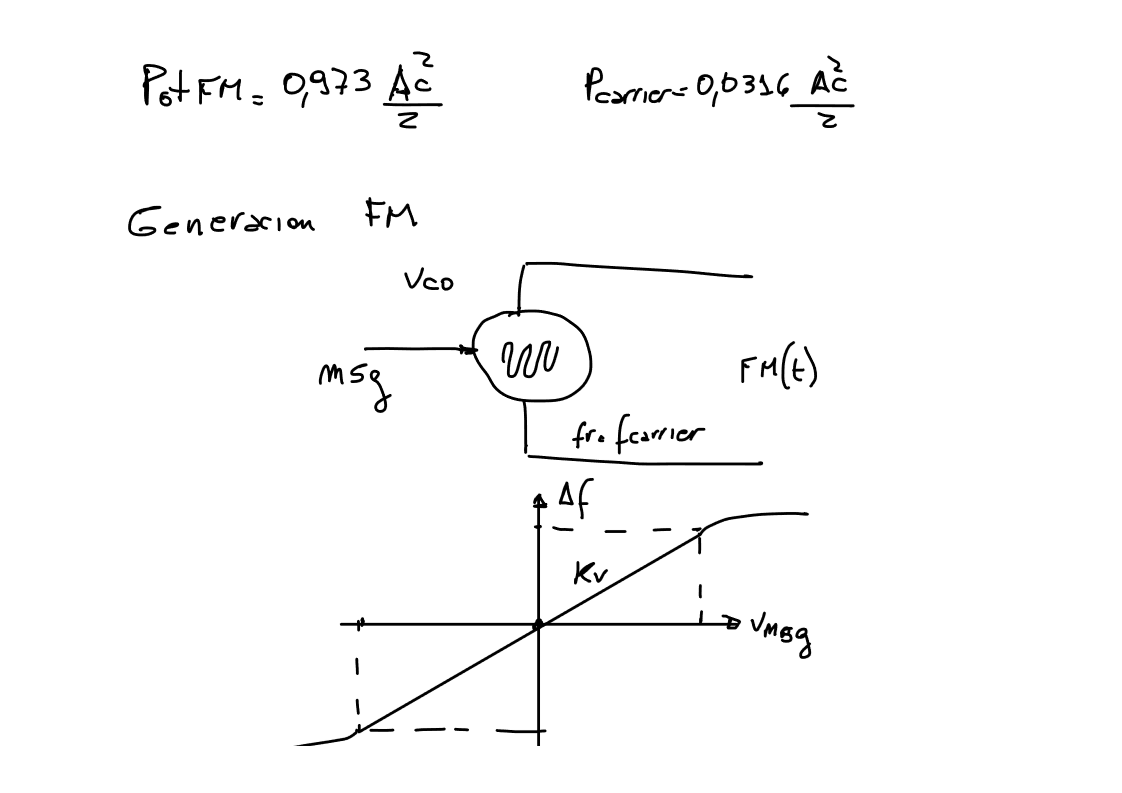 Pot FM = 0,973 Ac²/2    Pcarrier = 0,0316 Ac²/2
Generacion FM
Vco
msg
FM(t)
fr. fcarrier
Δf
Kv
VMsg